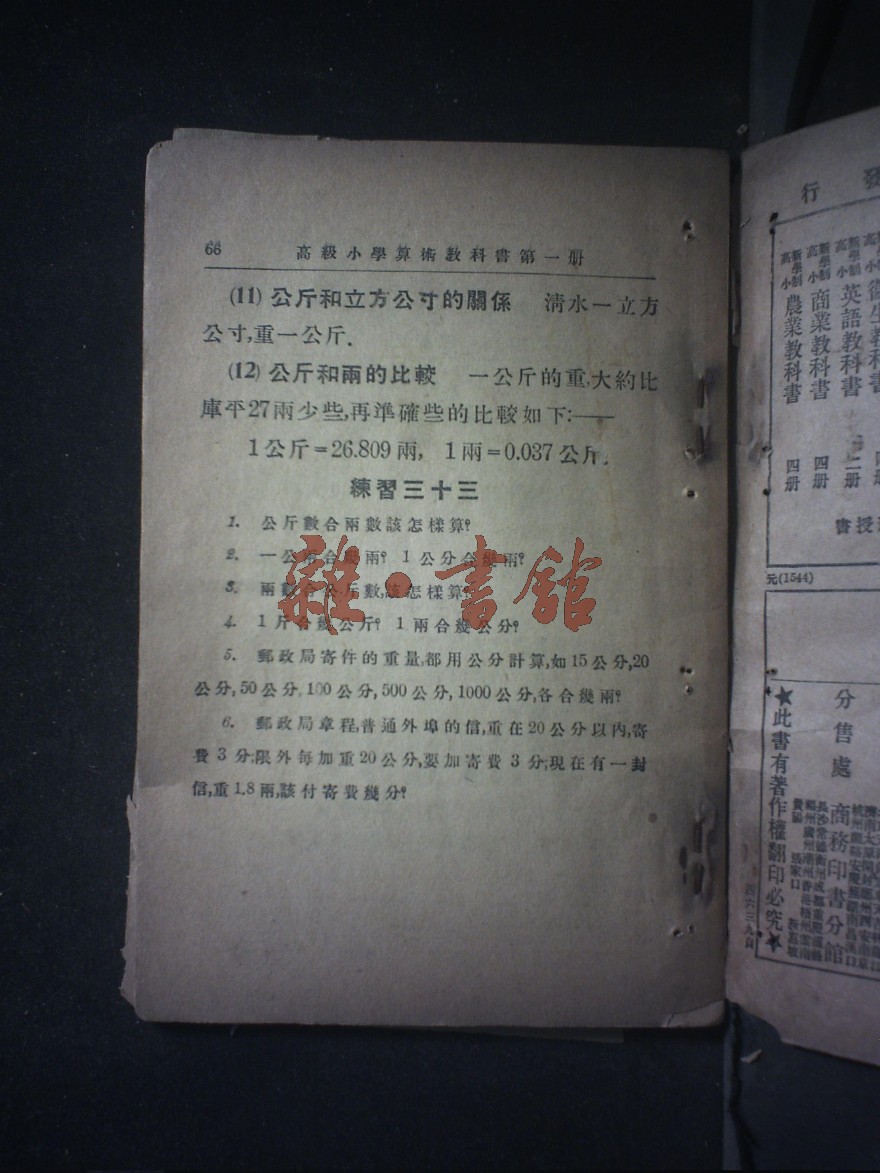 66 高級小學算術教科書第一册
(11) 公斤和立方公寸的關係 淸水一立方
公寸,重一公斤.
(12) 公斤和兩的比較 一公斤的重,大約比
庫平27兩少些,再準確些的比較如下:——
1公斤=26.809兩, 1兩=0.037公斤.
練習三十三
1. 公斤數合兩數該怎樣算?
2. 一公兩合幾兩? 1公分合幾兩?
3. 兩數合公斤數,該怎樣算?
4. 1斤合幾公斤? 1兩合幾公分?
5. 郵政局寄件的重量,都用公分計算,如15公分,20
公分,50公分,100公分,500公分,1000公分,各合幾兩?
6. 郵政局章程,普通外埠的信,重在20公分以內,寄
費3分;限外每加重20公分,要加寄費3分;現在有一封
信,重1.8兩,該付寄費幾分?
雜·書館
發行
新學制高小英語教科書 二册
新學制高小商業教科書 四册
新學制高小農業教科書 四册
授書
元(1544)
分售處
商務印書分館
★此書有著作權翻印必究★
四六三九自